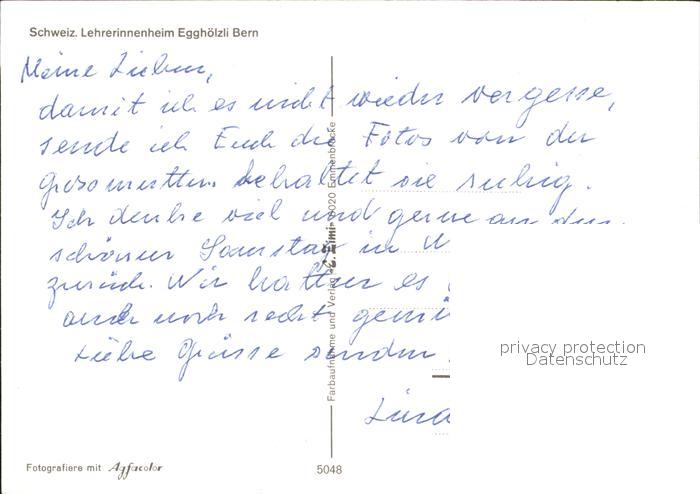 Schweiz. Lehrerinnenheim Egghölzli Bern
Meine Lieben,
damit ich es nicht wieder vergesse,
sende ich Euch die Fotos von der
Grossmutter. behaltet sie ruhig.
Ich denke viel und gerne an den
schönen Samstag in W
zurück. Wir hatten es
auch noch recht gemü
Liebe Grüsse senden
Lina
privacy protection
Datenschutz
Farbaufnahme und Verlag E. Zimi- 6020 Emmenbrücke
Fotografiere mit Agfacolor
5048